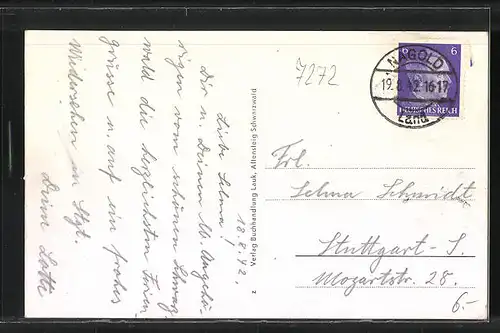 18.8.42.
Liebe Selma!
Dir u. Deinen lb. Angehö-
rigen vom schönen Schwarz-
wald die herzlichsten Ferien-
grüsse u. auf ein frohes
Wiedersehen in Stgt.
Deine Lotte
Verlag Buchhandlung Lauk, Altensteig Schwarzwald
2
7272
NAGOLD
19.8.42.16-17
Land
6
DEUTSCHES REICH
Frl.
Selma Schmidt
Stuttgart-S.
Mozartstr. 28.
6.-